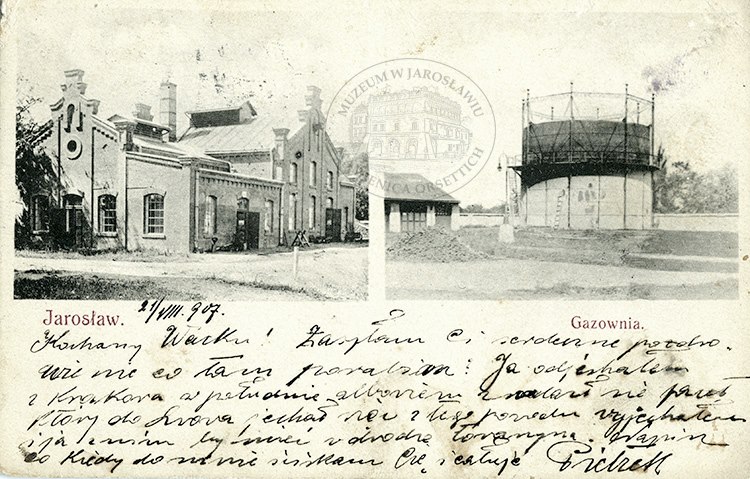 MUZEUM W JAROSŁAWIU
KAMIENICA ORSETTICH
Jarosław.
21/VIII. 907.
Gazownia.
Kochany Wacku! Zasyłam Ci serdeczne pozdro-
wienie co tam porabiasz? Ja odjechałem
z Krakowa w południe albowiem znalazł się
który do Lwowa jechał z tego powodu wyjechałem
i ja z nim by mieć w drodze
co kiedy do mnie ściskam Cię i całuję